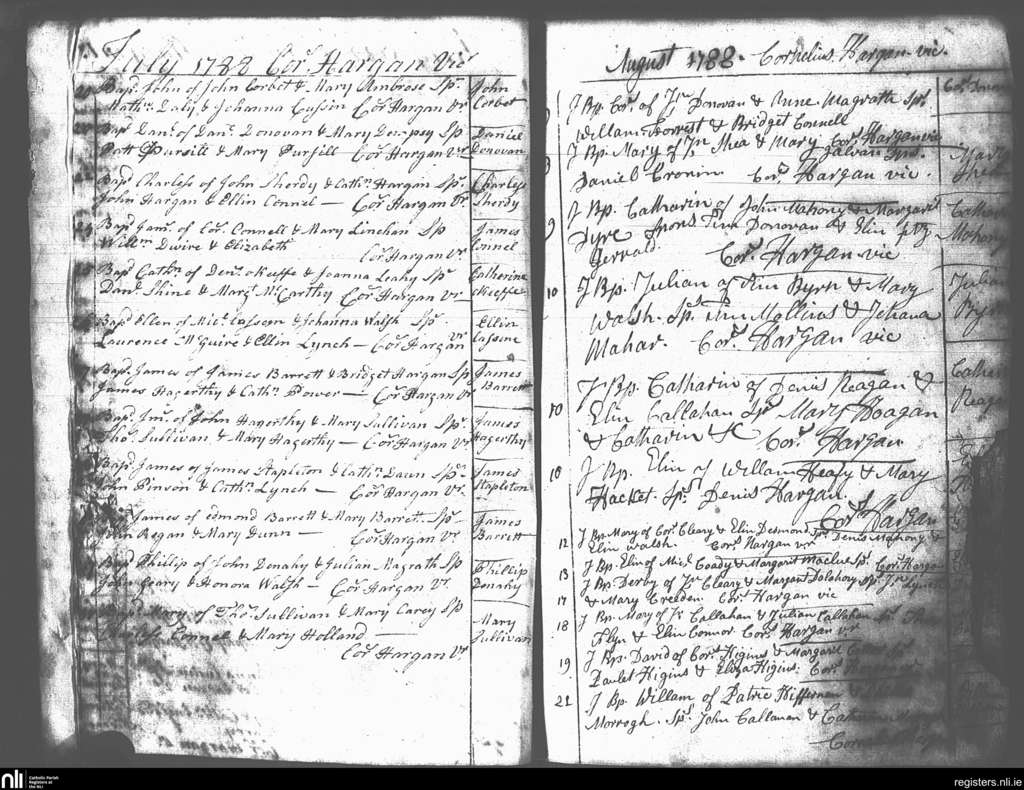 July 1788 Cor. Hargan Vic
Bapd. John of John Corbot & Mary Ambrose Sp.
Mathw. Daly & Johanna Cussin Cor Hargan Vr
John
Corbot
Bapd Danl. of Danl. Donovan & Mary Dempsy Sp
Patt Pursill & Mary Pursill – Cor Hargan Vr
Daniel
Donovan
Bapd Charless of John Sherdy & Cathn. Hargan Sp.
John Hargan & Ellin Connel – Cor Hargan Vr.
Charless
Sherdy
Bapd Jams. of Cor. Connell & Mary Linehan Sp
Willm Dwire & Elizabeth
Cor Hargan Vr
James
Connel
Bapd Cathn. of Denis oKeeffe & Joanna Leahy Sp.
Danl. Shine & Margt. McCarthy Cor Hargan Vr
Catherine
oKeeffe
Bapd Ellen of Micl. Cussen & Johanna Walsh Sp.
Laurence McGuire & Ellin Lynch – Cor Hargan Vr
Ellin
Bapd. James of James Barrett & Bridget Hargan Sp
James Hagerthy & Cathn. Power – Cor Hargan Vr
James
Barrett
Bapd Jms. of John Hagerthy & Mary Sullivan Sp.
Thos. Sullivan & Mary Hagerthy – Cor Hargan Vr
James
Hagerthy
Bapd. James of James Stapleton & Cathn. Dawn Sp.
John Pinson & Cathn. Lynch – Cor Hargan Vr.
James
Stapleton
James of Edmond Barrett & Mary Barrett Sp.
John Regan & Mary Dunn – Cor Hargan Vr
James
Barrett
Bapd Phillip of John Donahy & Julian Magrath Sp
John Geary & Honora Walsh – Cor Hargan Vr.
Phillip
Donahy
Mary of Thos. Sullivan & Mary Carey Sp
Charless Connel & Mary Holland –
Cor Hargan Vr
Mary
Sullivan
August 1788. Cornelius Hargan vic.
I Bp. Cor. of Jn. Donovan & Anne Magrath Sps.
Willam Forrest & Bridget Connell
Cor. Hargan vic
I Bp. Mary of Jn Shea & Mary Galvan Sps.
Daniel Cronin Cor. Hargan vic.
9 I Bp. Catharin of John Mahony & Margaret
Dyre Spons Tim Donovan & Elin fitz
Gerrald Cor. Hargan vic
10 I Bp. Julian of Tim Byrn & Mary
Walsh. Sps. Tim Mollins & Jehana
Mahar. Cor. Hargan vic
10 I Bp. Catharin of Denis Reagan &
Elin Callahan Sps Mary Hoagan
& Catharin Cor. Hargan
10 I Bp. Elin of Willam Heafy & Mary
Hacket. Sps Denis Hargan.
Cor. Hargan
12 I Bp. Mary of Cor. Cleary & Elin Desmond Sps. Denis Mahony &
Elin Walsh. Cor. Hargan vic
13 I Bp. Elin of Micl. Coady & Margarat Maclue Sps. Cor. Hargan
17 I Bp. Derby of Jn Cleary & Margarat Dolahory Sps. Jn Lynch
& Mary Creeden Cor. Hargan vic
18 I Bp. Mary of Jn Callahan & Julian Callahan Sps
Flyn & Elin Connor Cor. Hargan vic
19 I Bp. David of Cor. Higins & Margaret
Daulet Higins & Eliza Higins. Cor.
21 I Bp. Willam of Patric Hiffernan &
Morrogh. Sps. John Callanan &
nli
Catholic Parish
Registers at
the NLI
registers.nli.ie